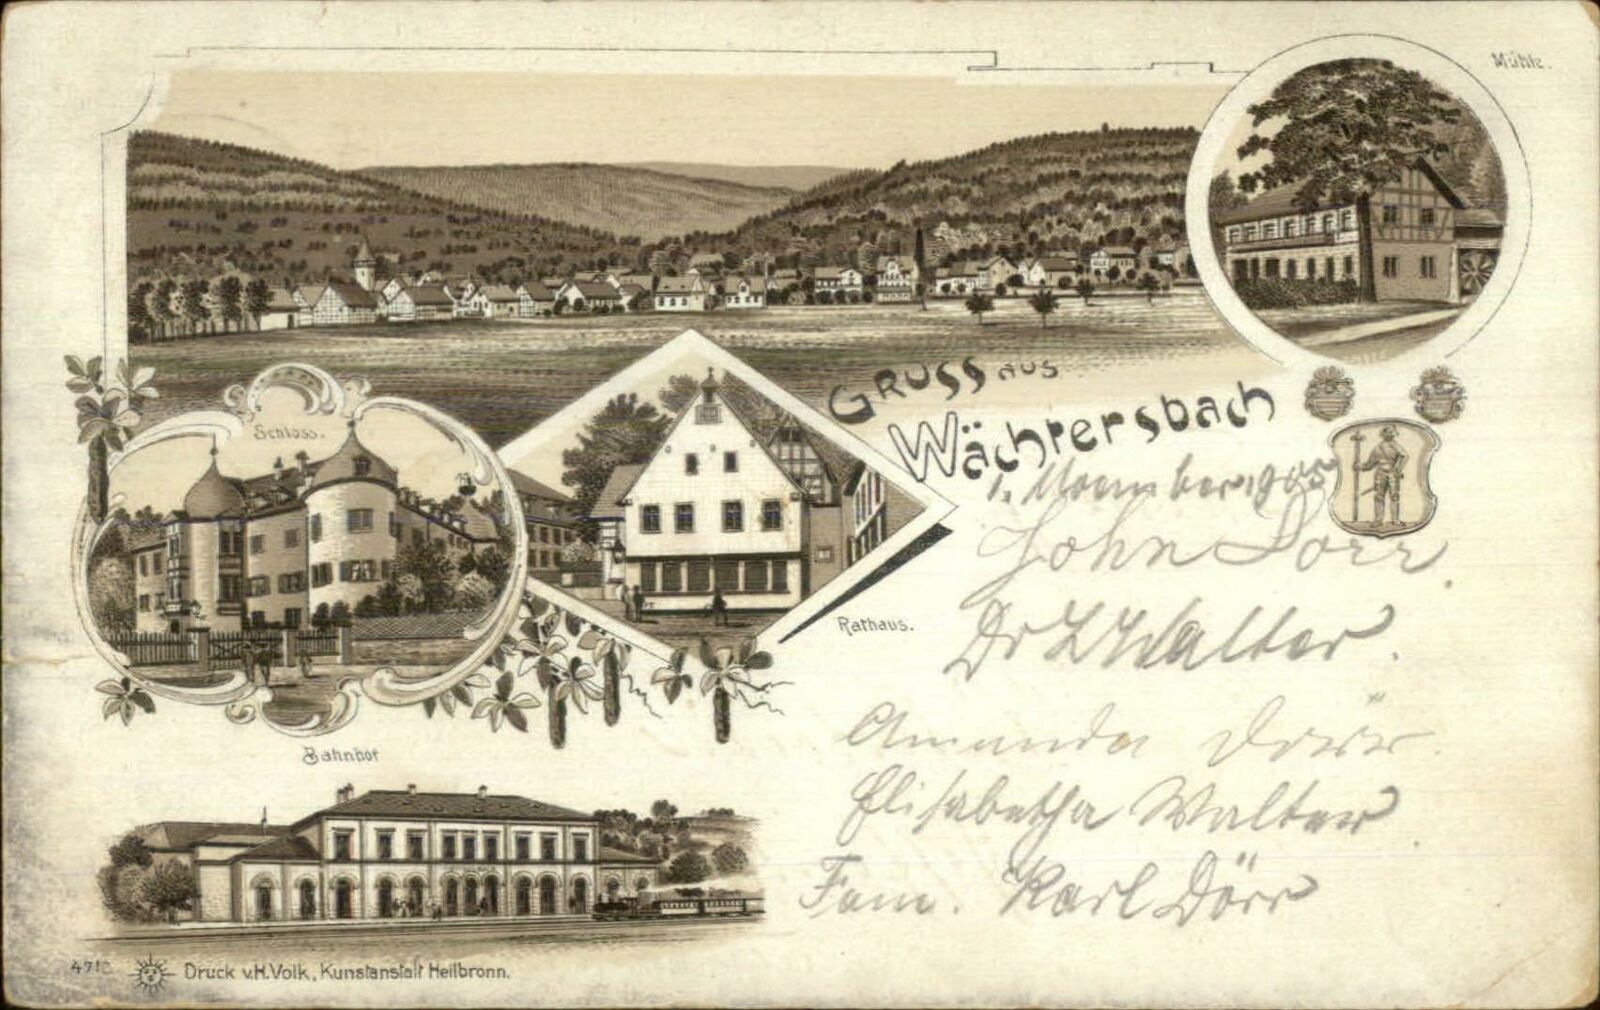 Mühle.
Gruss aus
Wächtersbach
Schloss.
Rathaus.
Bahnhof
John Dörr.
Dr L Walter.
Amanda Dörr.
Elisabetha Walter
Fam. Karl Dörr
Druck v. H. Volk, Kunstanstalt Heilbronn.